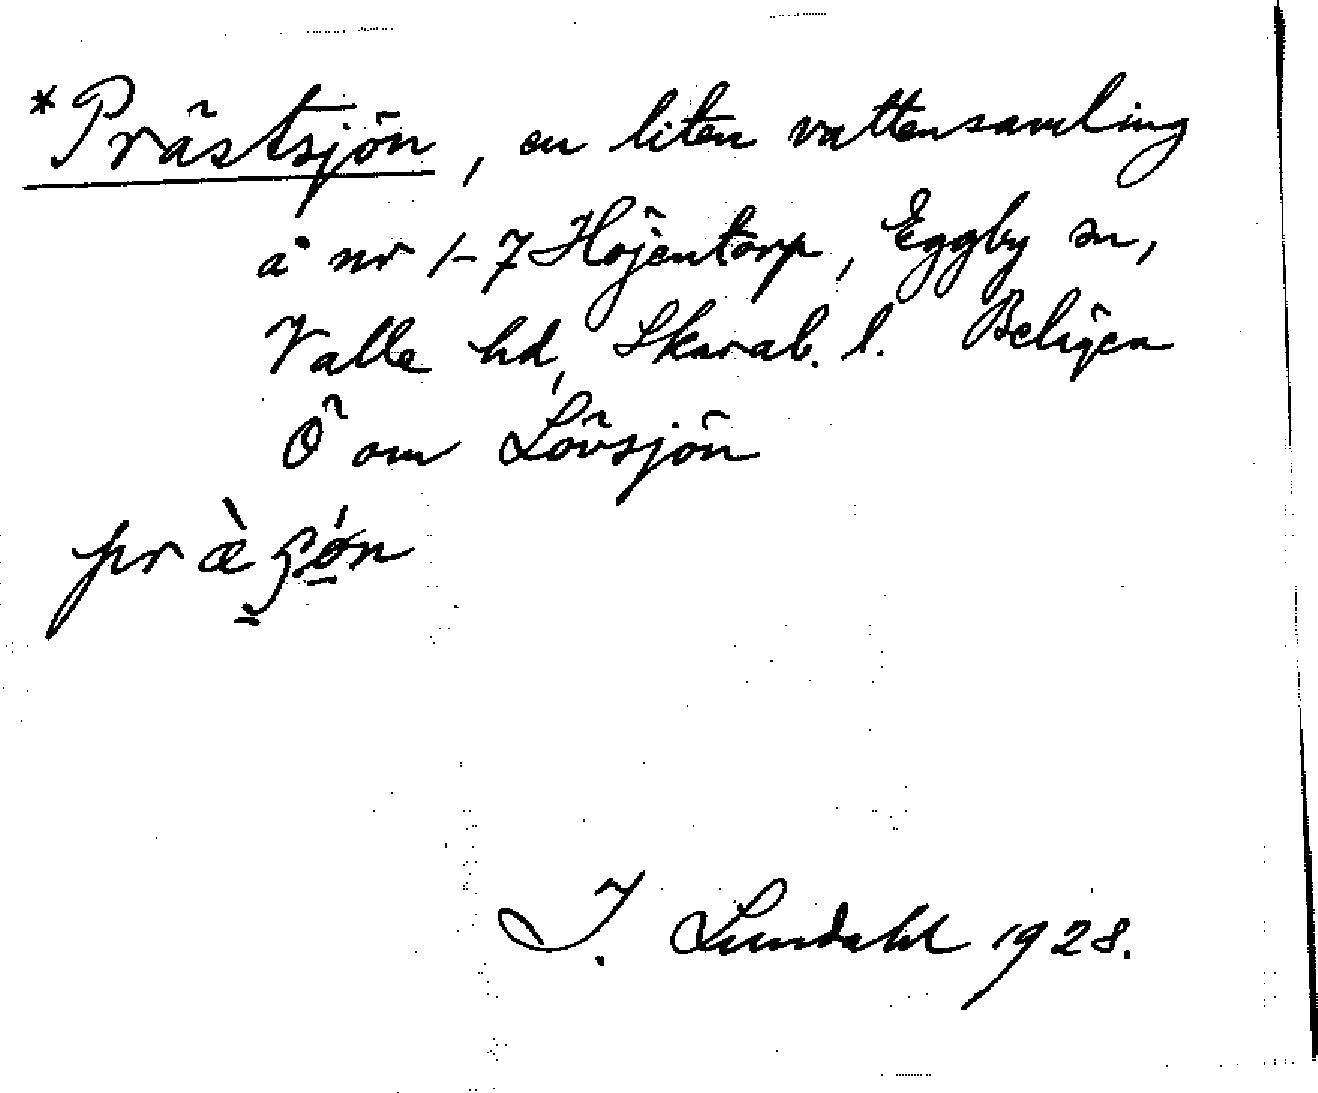 *Prästsjön, en liten vattensamling
å nr 1-7 Höjentorp, Eggby sn,
Valle hd, Skarab. l. Belägen
Ö om Lövsjön
I. Lundahl 1928.